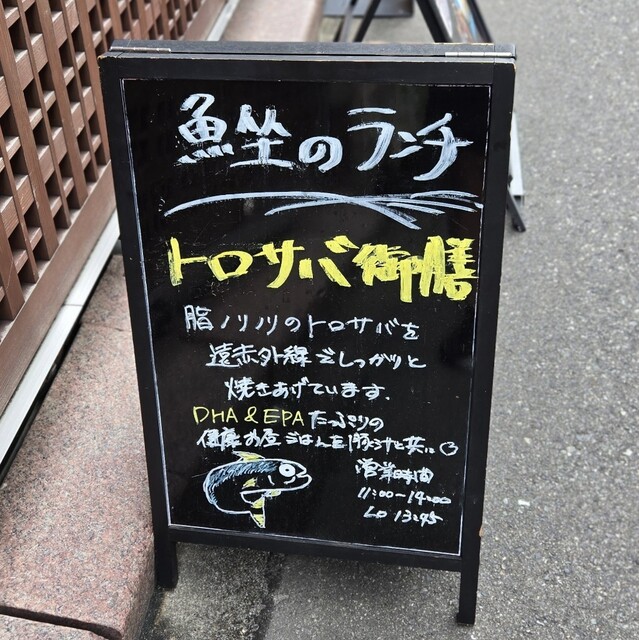 魚坐のランチ
トロサバ御膳
脂ノリノリのトロサバを
遠赤外線でしっかりと
焼きあげています。
DHA & EPA たっぷりの
健康お昼ごはんを豚汁と共に
営業時間
11:00〜14:00
LO 13:45